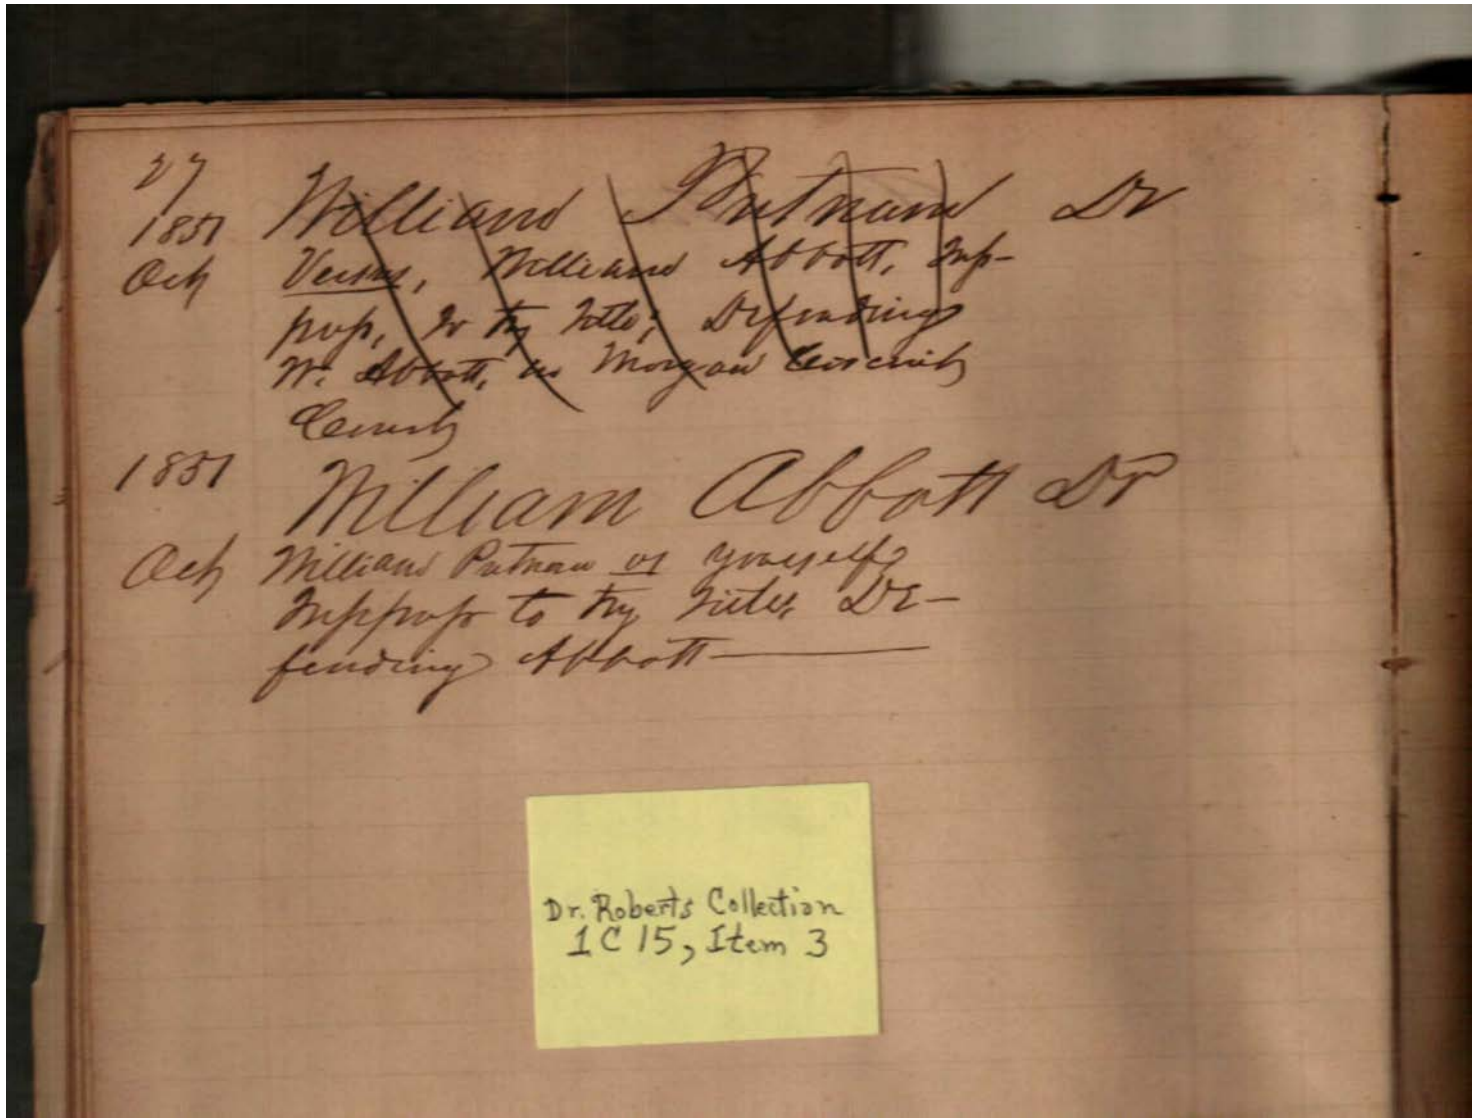 27
1851 William Putnam Dr
Oct Versus, William Abbott, Tresp-
pass, to try Title; Defending
W. Abbott, in Morgan Circuit
Court
1851 William Abbott Dr
Oct William Putnam vs yourself
Tresspass to try Title, De-
fending Abbott
Dr. Roberts Collection
1C15, Item 3